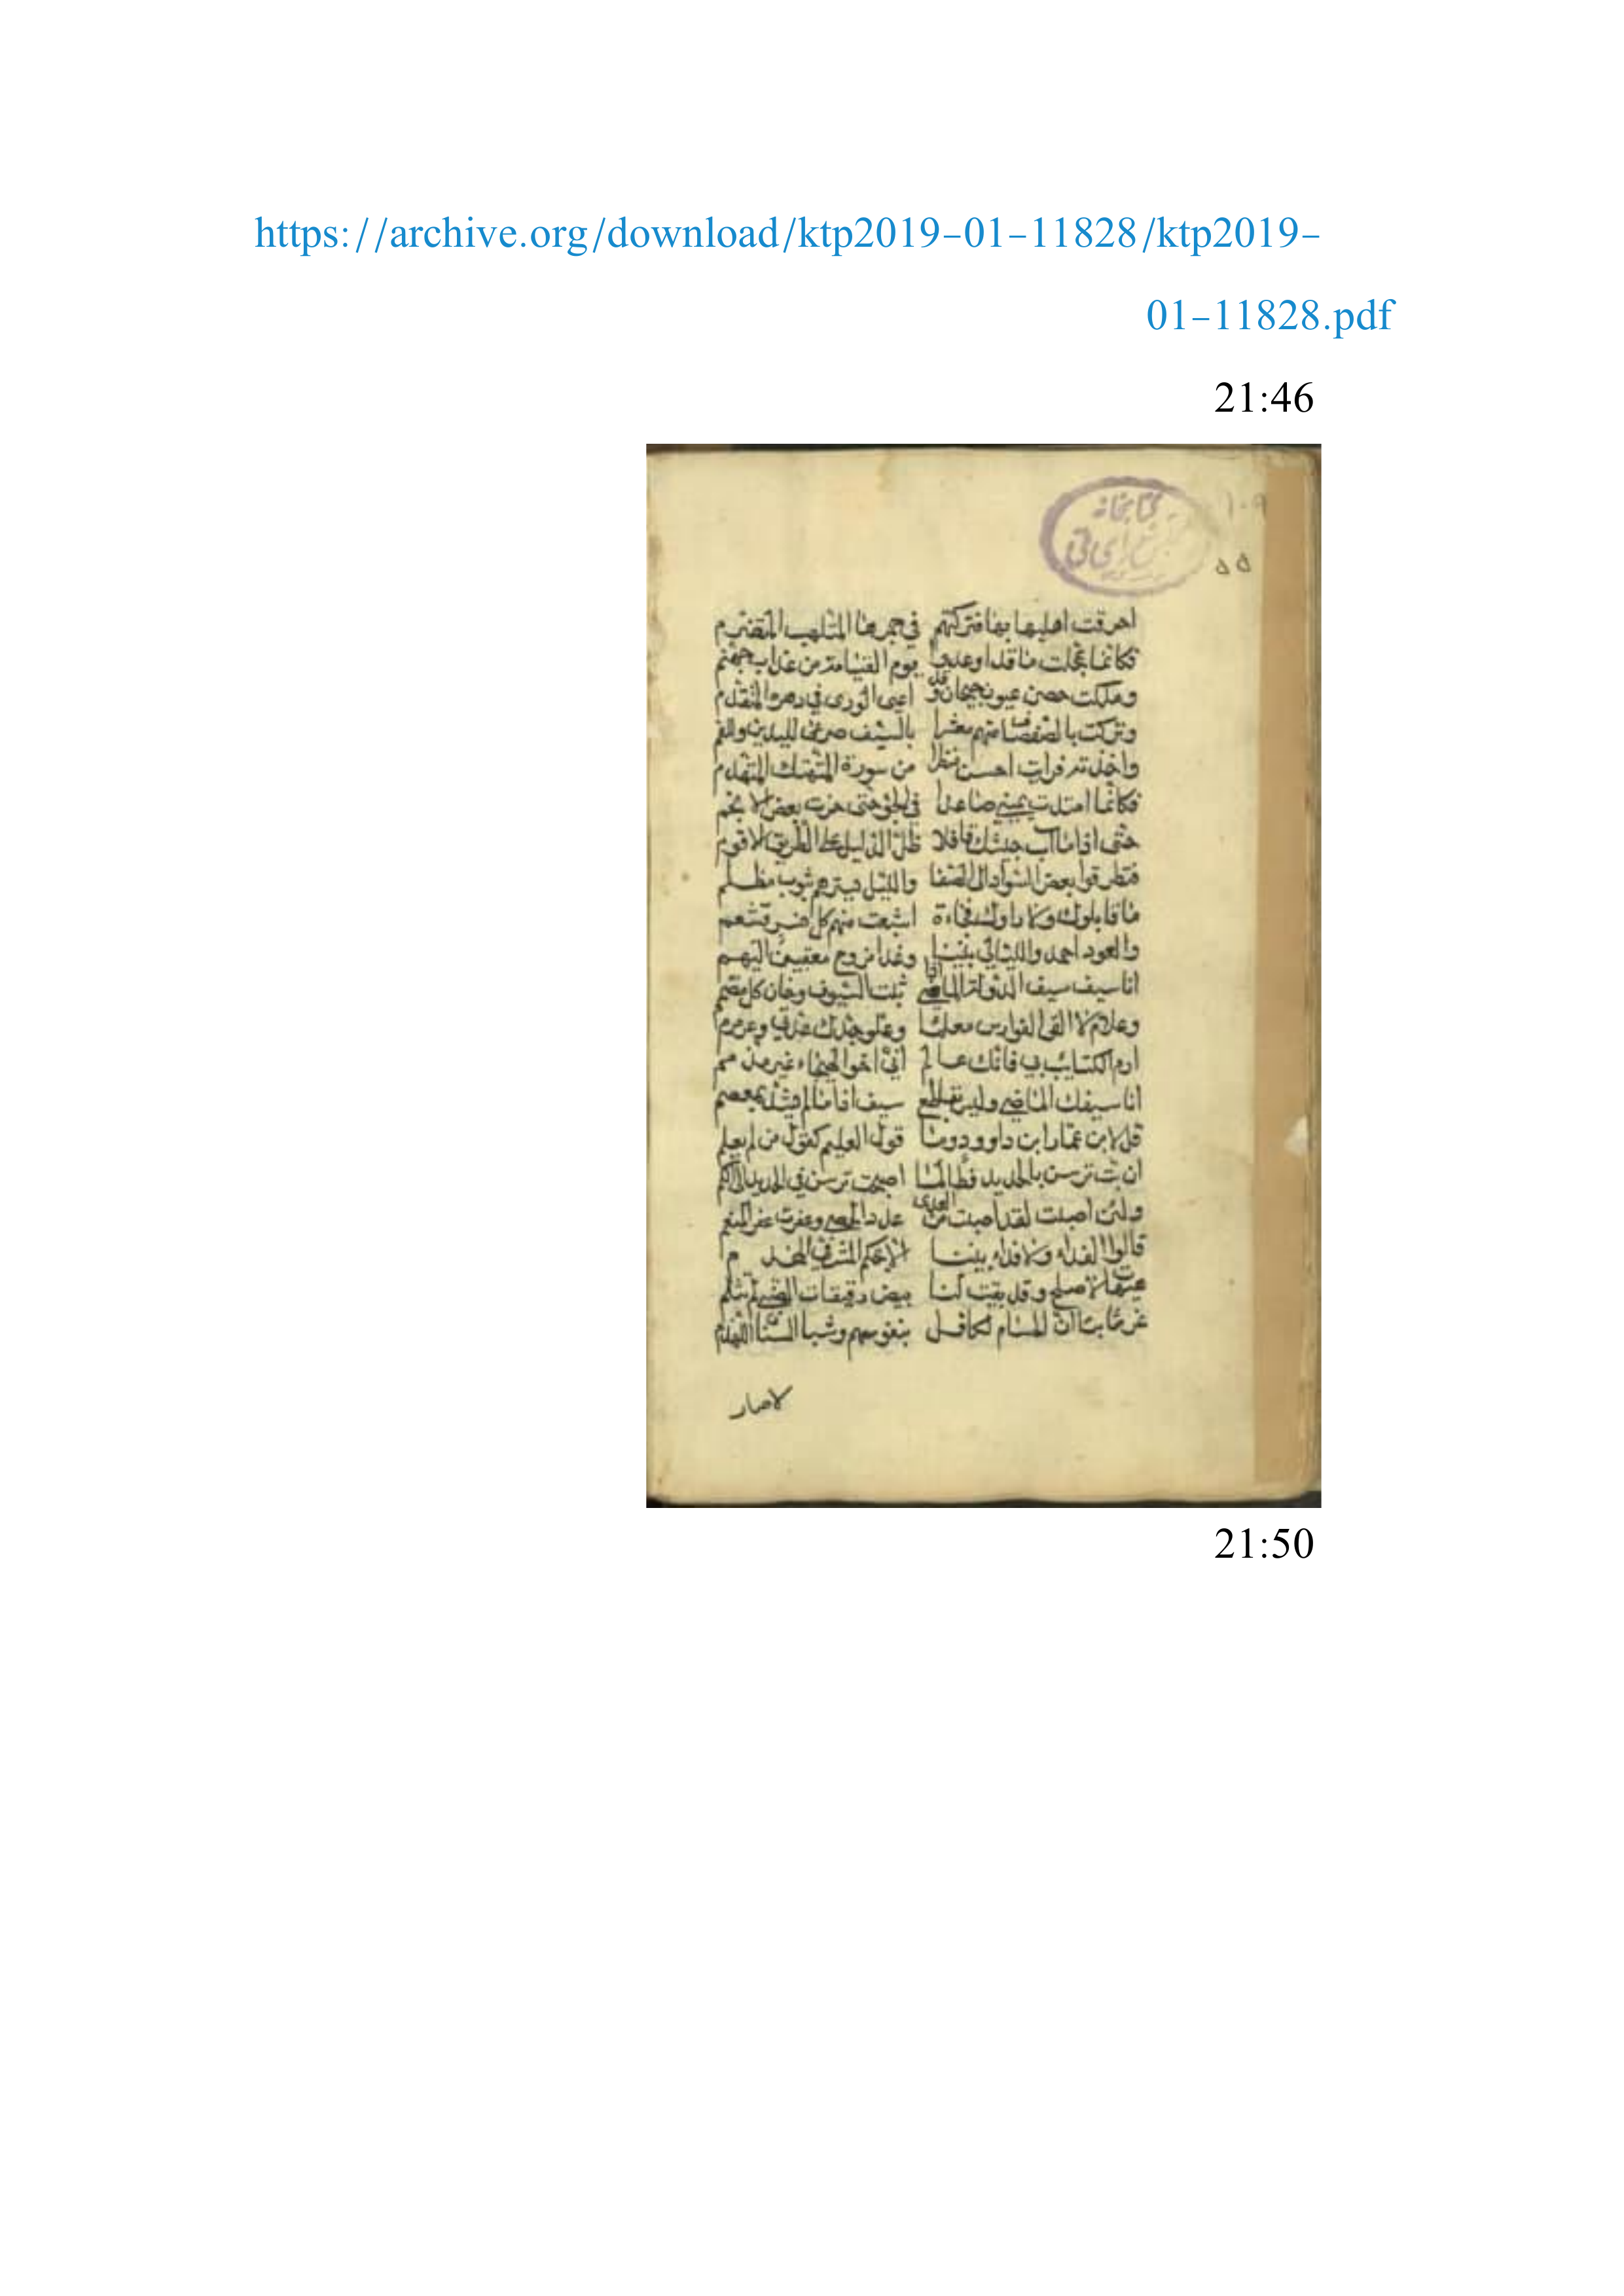 https://archive.org/download/ktp2019-01-11828/ktp2019-
01-11828.pdf
21:46
كتابخانه
١٠٩
٥٥
احرقت اهليها بها فتركتهم في جمرها المتلهب المتضرم
فكانما عجلت ما قد اوعدوا يوم القيامة من عذاب جهنم
وملكت حصن عيون جيحان وقد اعيى الورى في دهره المتقدم
وتركت بالصفصاف منهم معشرا بالسيف صرعى لليدين وللفم
واخذت من سورة المتهتك المتهدم
فكانما امتدت يمينه صاعدا في الجو حتى حزت بعض الانجم
حتى اذا ما آب جيشك قافلا ظل الذليل على الطريق الاقوم
فتطرقوا بعض السواد الى الصفا والليل يسترهم بثوب مظلم
ما قابلوك ولا راوك فجاءة اشبعت منهم كل نسر قشعم
والعود احمد والليالي بيننا وغدا نروح معقبين اليهم
انا سيف سيف الدولة الماضي اذا نبت السيوف وخان كل مصمم
وعلام لا القى الفوارس معلما وعلو جدك عدتي وعرمرم
ارم الكتايب بي فانك عالم اني اخو الهيجاء غير مذمم
انا سيفك الماضي وليس بقاطع سيف اذا ما لم يشد بمعصم
قل لابن عمار ابن داوود وما قول العليم كقول من لم يعلم
ان بت ترسن بالحديد فطالما اصبحت ترسن في الحديد
ولئن اصبت لقد اصبت من العدى عدد الحصى وعفرت
قالوا الفداء ولا فداء بيننا الا بحكم المشرفي المخذم
هيهات لا صلح وقد بقيت لنا بيض رقيقات لم تثلم
بنفوسهم وشبا السنان اللهذم
لاصار
21:50